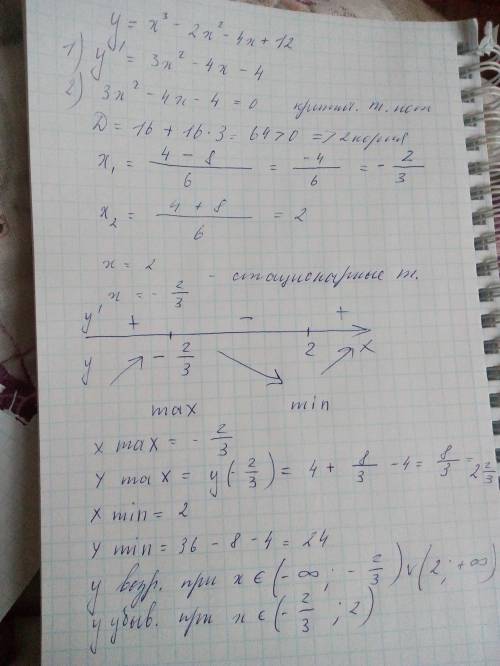 y = x³ - 2x² - 4x + 12
1) y' = 3x² - 4x - 4
2) 3x² - 4x - 4 = 0 критич. т. нет
D = 16 + 16·3 = 64 > 0 => 2 корня
x₁ = (4 - 8)/6 = -4/6 = -2/3
x₂ = (4 + 8)/6 = 2
x = 2
x = -2/3 - стационарные т.
y' + - +
y -2/3 2 x
max min
x max = -2/3
y max = y(-2/3) = 4 + 8/3 - 4 = 8/3 = 2 2/3
x min = 2
y min = 36 - 8 - 4 = 24
y возр. при x ∈ (-∞; -2/3) ∨ (2; +∞)
y убыв. при x ∈ (-2/3; 2)